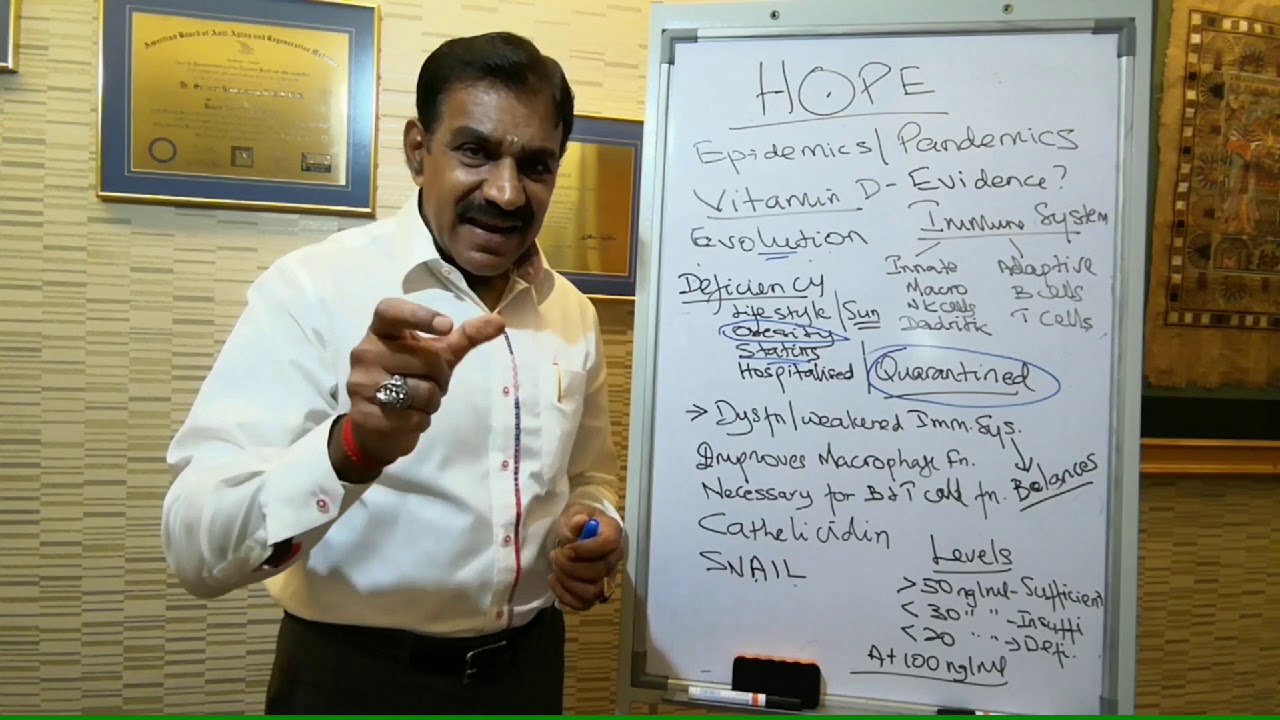 American Board of Anti Aging and Regenerative Medicine
HOPE
Epidemics/Pandemics
Vitamin D - Evidence?
Evolution
Immune System
Innate
Macro
NK cells
Adaptive
B cells
T cells
Deficiency
Lifestyle/Sun
Obesity
Statins
Hospitalised
Quarantined
→ Dysfn/weakened Imm. Sys.
Improves Macrophage fn.
Necessary for B&T cell fn.
Balances
Cathelicidin
SNAIL
Levels
>50 ng/ml - Sufficient
<30 " " - Insuffi
<20 " " → Defi.
At 100 ng/ml